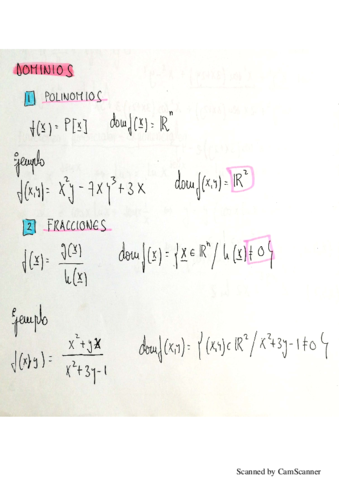 DOMINIOS
1 POLINOMIOS
f(x) = P[x] dom f(x) = ℝⁿ
Ejemplo
f(x,y) = x²y - 7xy³ + 3x dom f(x,y) = ℝ²
2 FRACCIONES
f(x) = g(x)/h(x) dom f(x) = {x ∈ ℝⁿ / h(x) ≠ 0}
Ejemplo
f(x,y) = x²+yx / x²+3y-1 dom f(x,y) = {(x,y) ∈ ℝ² / x²+3y-1 ≠ 0}
Scanned by CamScanner